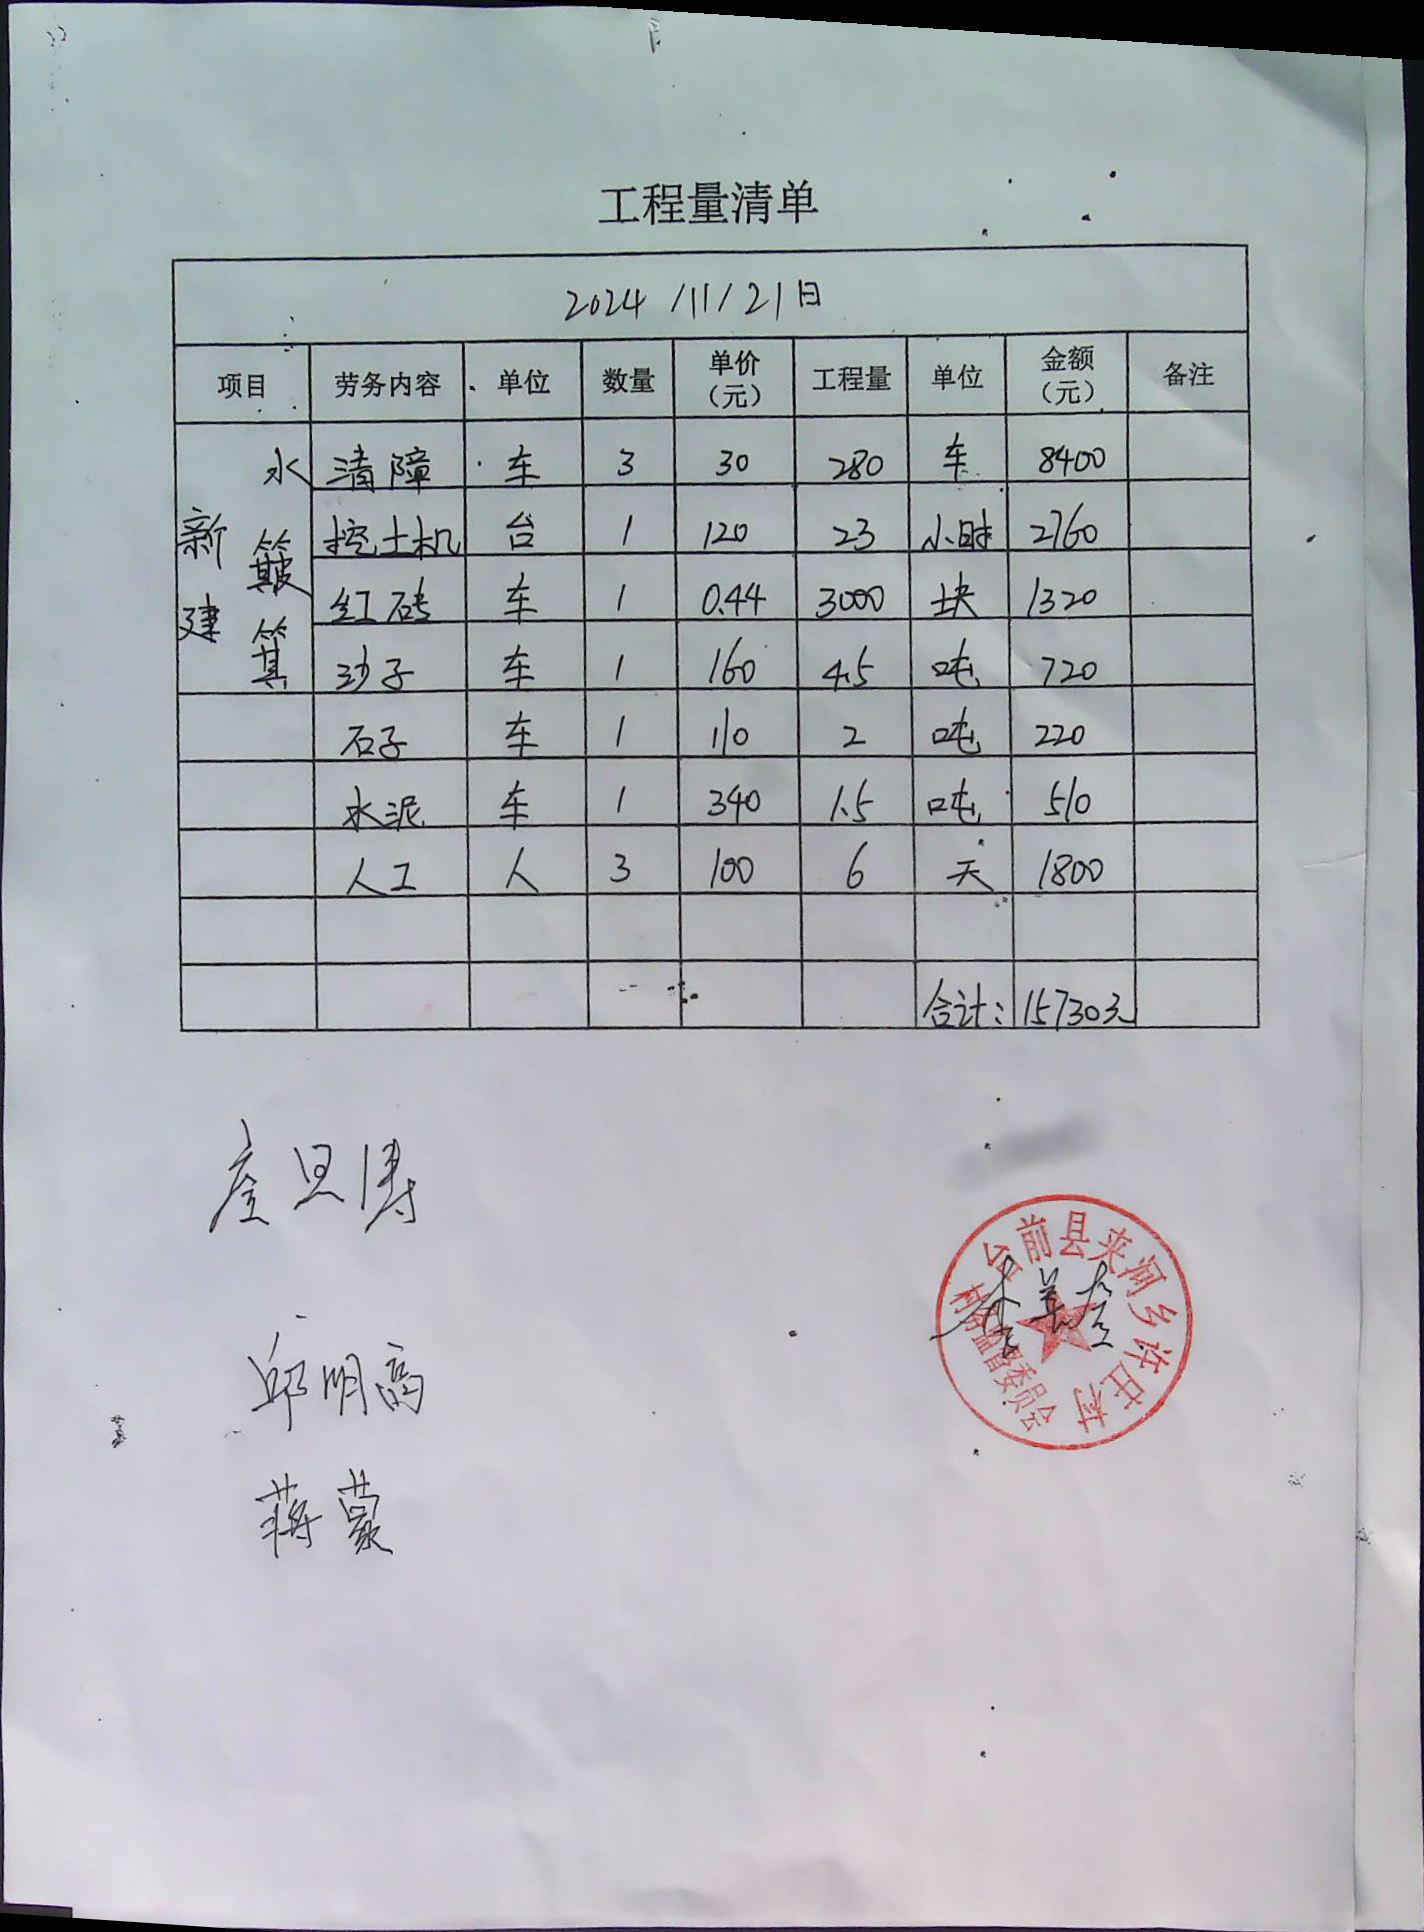 工程量清单
2024/11/21日
项目 劳务内容 单位 数量 单价（元） 工程量 单位 金额（元） 备注
新建 水簸箕
清障 车 3 30 280 车 8400
挖土机 台 1 120 23 小时 2760
红砖 车 1 0.44 3000 块 1320
沙子 车 1 160 4.5 吨 720
石子 车 1 110 2 吨 220
水泥 车 1 340 1.5 吨 510
人工 人 3 100 6 天 1800
合计：15730元
台前县夹河乡许庄村
村务监督委员会
邱明高
蒋蒙